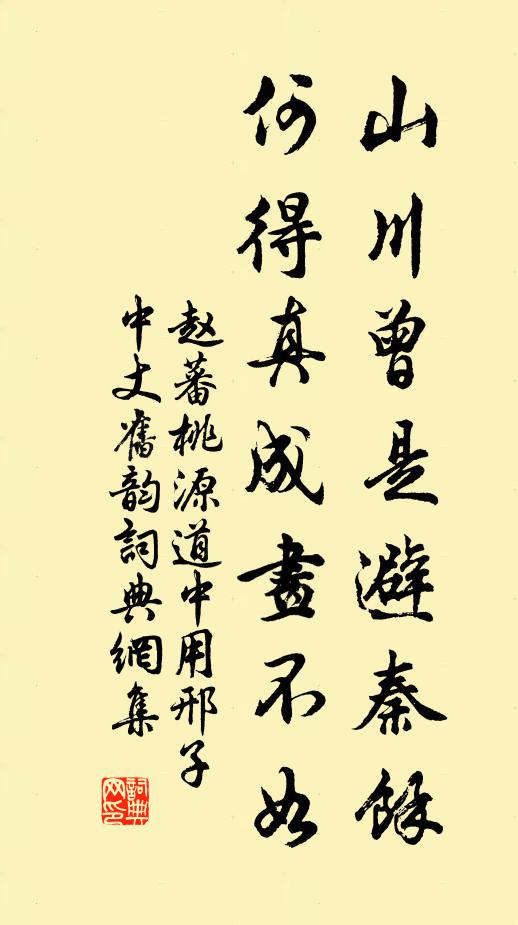 山川曾是避秦餘
何得真成畫不如
赵蕃桃源道中用邢子
中丈舊韵詞典網集
詞典網印